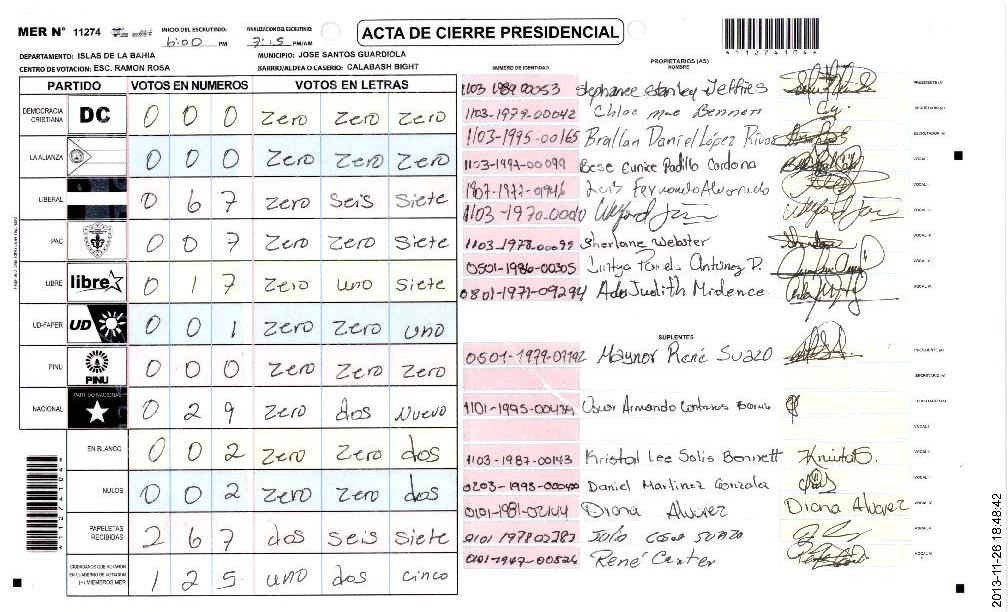 MER N° 11274
INICIO DEL ESCRUTINIO: 6:00 PM
FINALIZACION DEL ESCRUTINIO: 7:15 PM/AM
ACTA DE CIERRE PRESIDENCIAL
4112741046
DEPARTAMENTO: ISLAS DE LA BAHIA
MUNICIPIO: JOSE SANTOS GUARDIOLA
CENTRO DE VOTACION: ESC. RAMON ROSA
BARRIO/ALDEA O CASERIO: CALABASH BIGHT
PARTIDO VOTOS EN NUMEROS VOTOS EN LETRAS
DEMOCRACIA CRISTIANA DC 0 0 0 zero zero zero
LA ALIANZA 0 0 0 zero zero zero
LIBERAL 0 6 7 zero seis siete
PAC 0 0 7 zero zero siete
LIBRE libre 0 1 7 zero uno siete
UD-FAPER UD 0 0 1 zero zero uno
PINU PINU 0 0 0 zero zero zero
NACIONAL PARTIDO NACIONAL 0 2 9 zero dos nuevo
EN BLANCO 0 0 2 zero zero dos
NULOS 0 0 2 zero zero dos
PAPELETAS RECIBIDAS 2 6 7 dos seis siete
CIUDADANOS QUE VOTARON EN CUADERNO DE VOTACION (+) MIEMBROS MER 1 2 5 uno dos cinco
NUMERO DE IDENTIDAD
PROPIETARIOS (AS)
NOMBRE
1103 1989 00053 Stephanee Stanley Jeffries PRESIDENTE (A)
1103-1979-00042 Chloe mae Bennett SECRETARIO (A)
1103-1995-00165 Brallan Daniel López Rivas ESCRUTADOR (A)
1103-1994-00099 Bese Eunice Padillo Cardona VOCAL I
Luis Fernando Alvarado VOCAL II
1103-1970-00010 VOCAL III
1103-1978-00099 Sherlane Webster VOCAL IV
0501-1986-00305 Antúnez P. VOCAL V
0801-1971-09294 Ada Judith Midence VOCAL VI
SUPLENTES
0501-1979-07192 Maynor René Suazo PRESIDENTE (A)
SECRETARIO (A)
1101-1995-00439 Oscar Armando Contreras ESCRUTADOR (A)
VOCAL I
1103-1987-00143 Kristal Lee Solis Bennett KristalS. VOCAL II
Daniel Martinez Gonzalez VOCAL III
0101-1981-02144 Diana Alvarez Diana Alvarez VOCAL IV
0101 1978 02383 Julio Cesar Suazo VOCAL V
0101-1967-00526 René Carter VOCAL VI
4112741046
2013-11-26 18:48:42